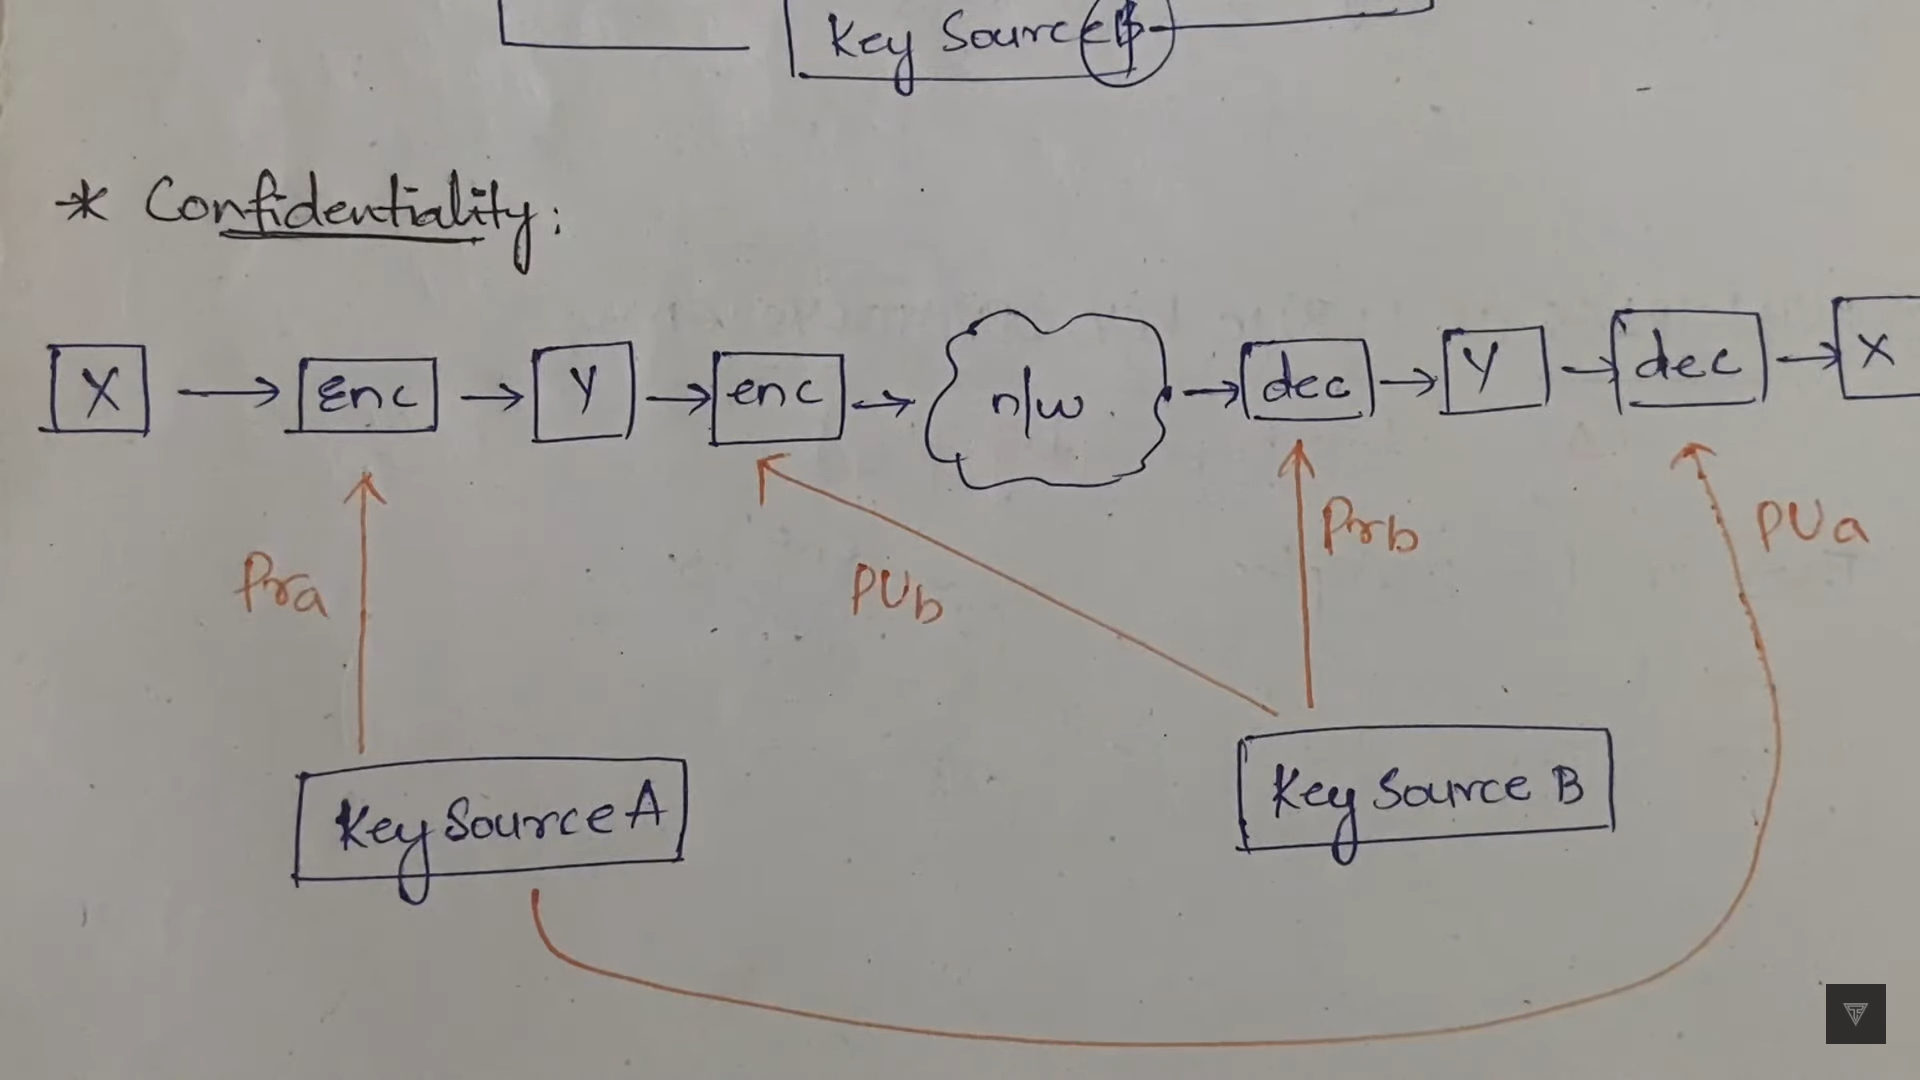 Key Source B
* Confidentiality:
X enc Y enc n/w dec Y dec X
Pra PUb Prb PUa
Key Source A Key Source B